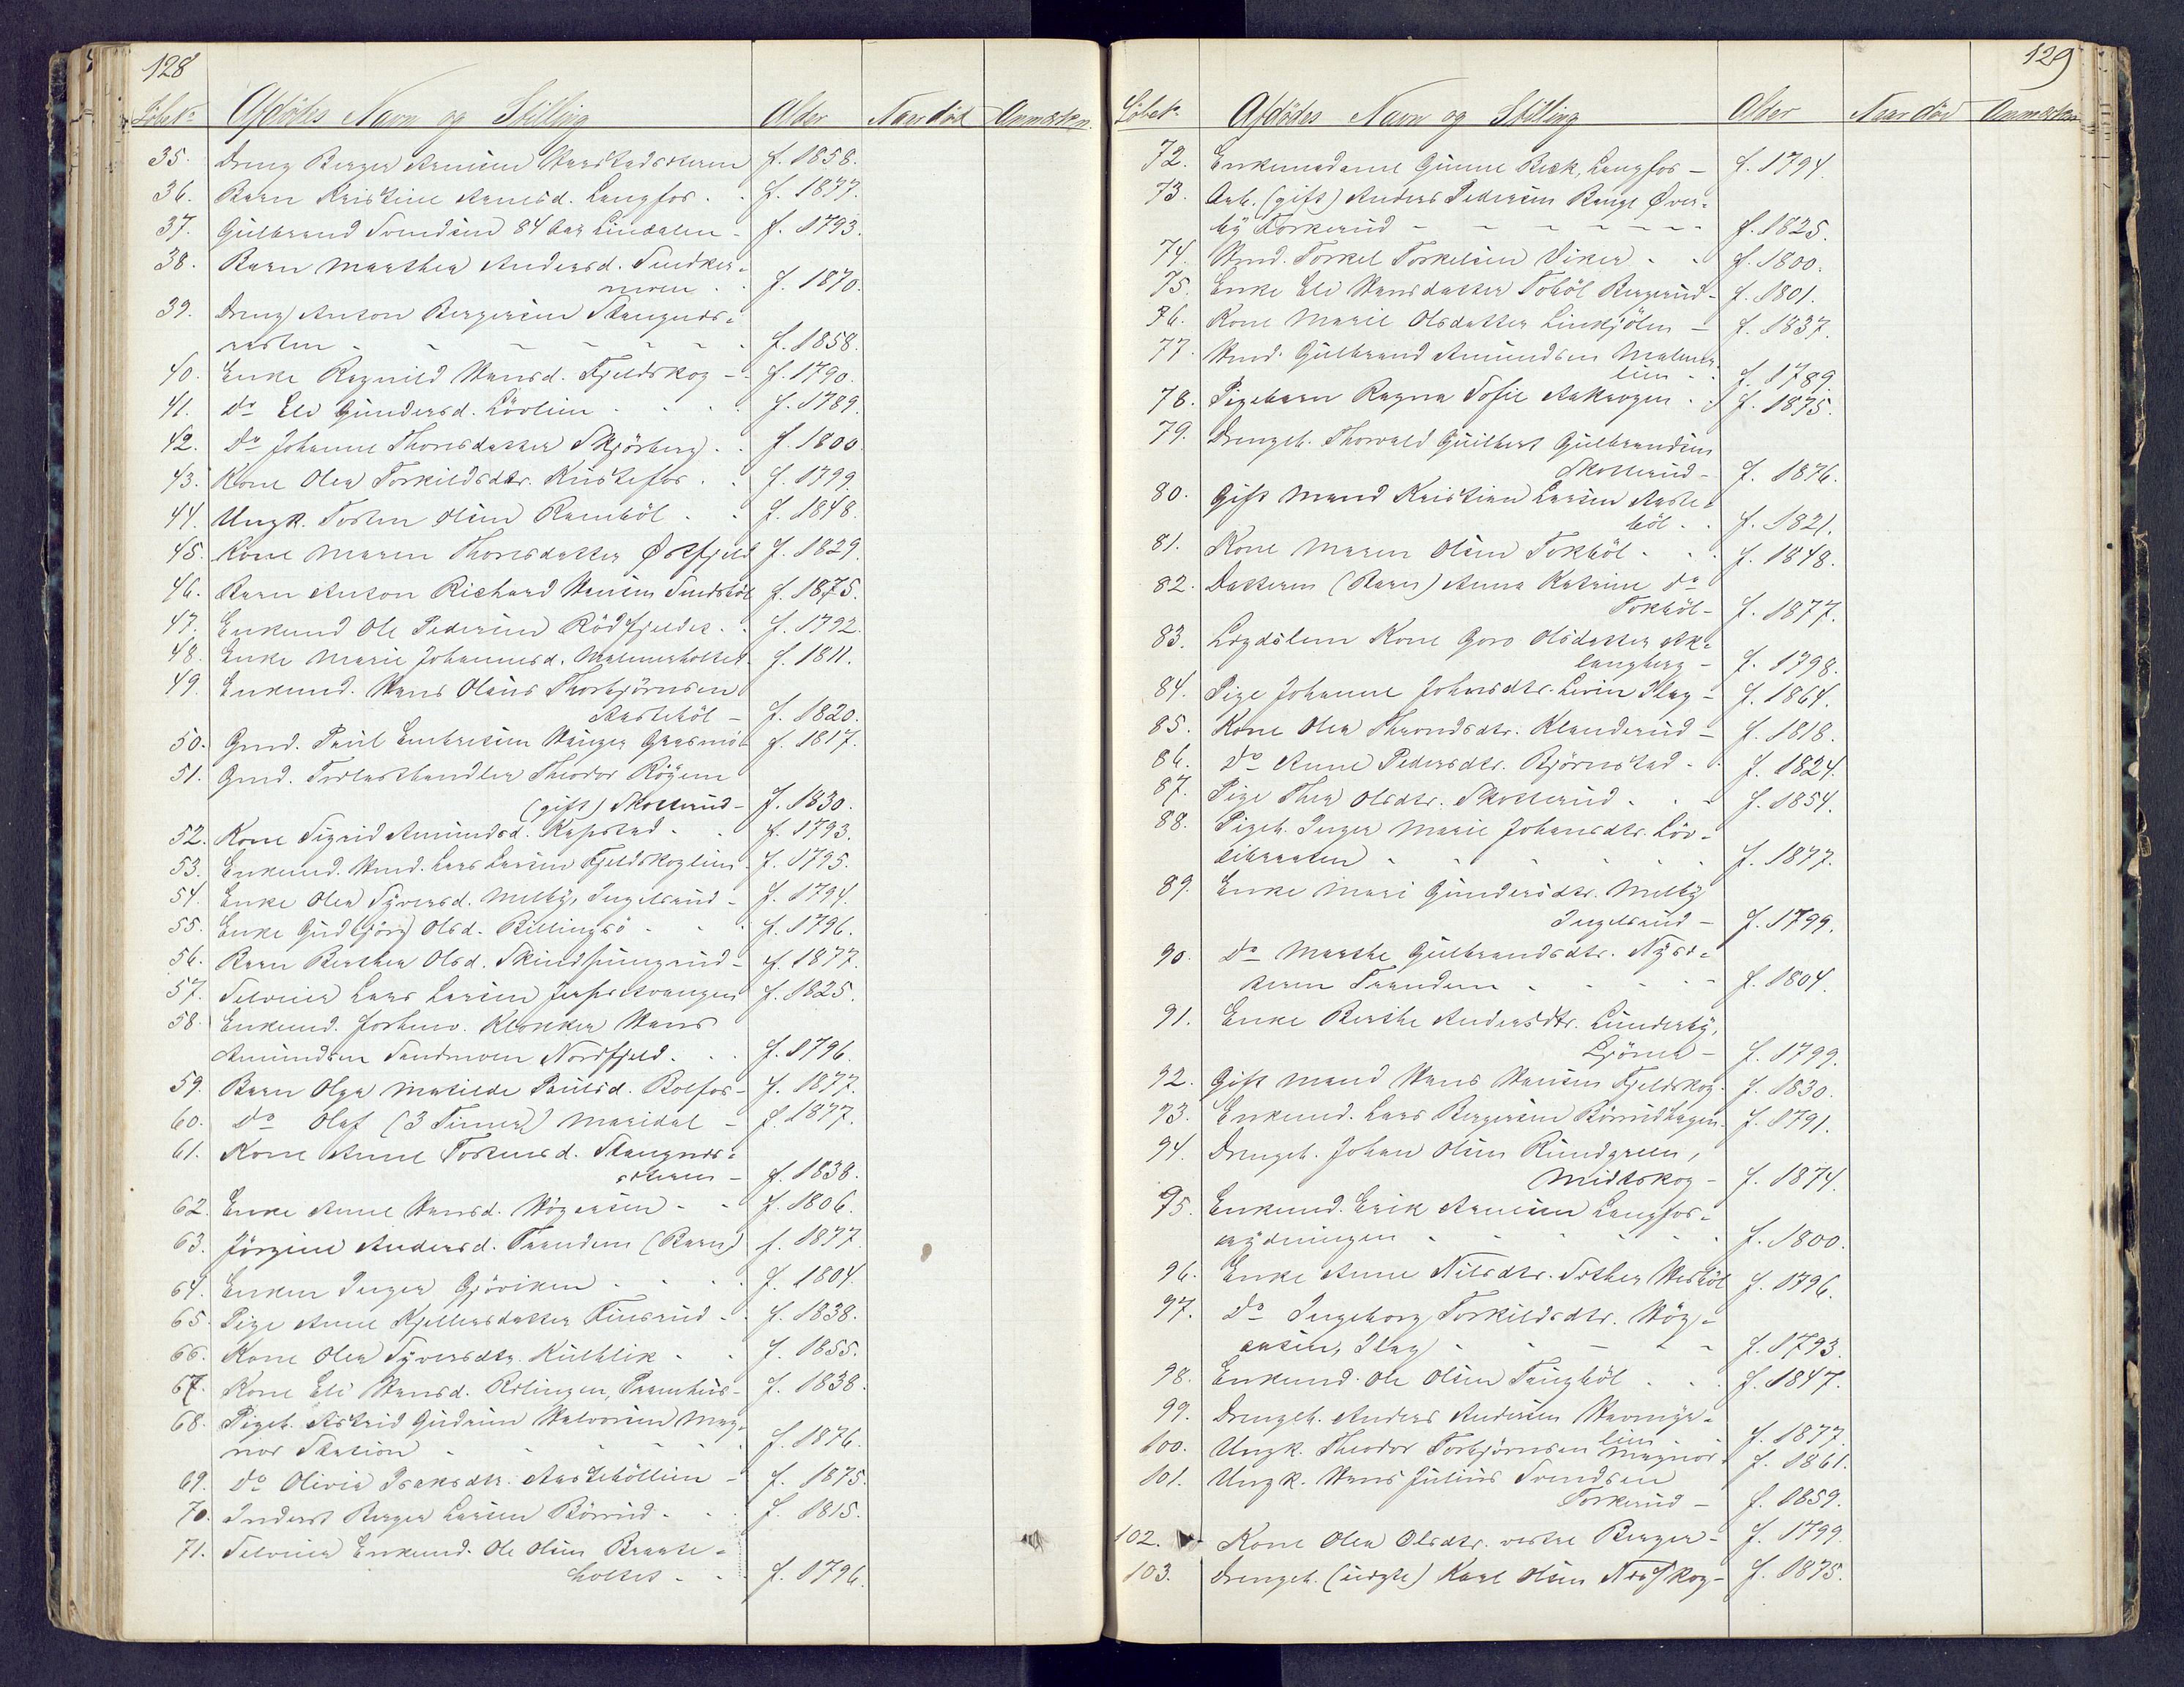 128
Løbe No Afdødes Navn og Stilling Alder Naar død Anmærkn.
35. Dreng Berger Arnesen Harstadsæteren f. 1858.
36. Barn Kristine Arnesd. Langfos f. 1877.
37. Gulbrand Svendsen 84 Aar Lindalen f. 1793.
38. Barn Marthea Andersd. Sudker-
moen f. 1870.
39. Dreng Anton Bergersen Skangnds-
f. 1858.
40. Enke Ragnild Hansd. Fjeldskog f. 1790.
41. Do Eli Gundersd. Lövlien f. 1789.
42. Do Johanne Thoresdatter Skjörberg f. 1800
43. Kone Olea Torkildsdtr. Kustefos f. 1799.
44. Ungk. Tosten Olsen Ramböl f. 1848.
45. Kone Maren Thoresdatter Østfjeld f. 1829.
46. Barn Anton Richard Hansen Sundsböl f. 1875.
47. Enkemd Ole Pedersen Rödfjeldet f. 1792.
48. Enke Marie Johannesd. Malmerholtet f. 1811.
49. Enkemd. Hans Olaus Thorbjörnsen
Aarteböl f. 1820.
50. Gmd. Paul Embretsen Hanger Grasmö f. 1817.
51. Gmd. Trælasthandler Theodor Röyem
(gift) Skotterud f. 1830.
52. Kone Sigrid Amundsd. Kapstad f. 1793.
53. Enkemd. Hmd. Lars Larsen Fjeldskoglien f. 1795.
54. Enke Olea Syversd. Melby, Ingelsrud f. 1794.
55. Enke Gudbjörg Olsd. Billingsö f. 1796.
56. Barn Berthea Olsd. Skindpungrud f. 1877.
57. Selveier Lars Larsen Jerpsetvangen f. 1825.
58. Enkemd. Jordm. Klokker Hans
Amundsen Sandmoen Nordfjeld f. 1796.
59. Barn Olga Matilde Paulsd. Bolfos f. 1877.
60. Do Olaf (3 Timer) Maridal f. 1877.
61. Kone Anne Tostensd. Skangnds-
æteren f. 1838.
62. Enke Anne Hansd. Högaasen f. 1806.
63. Jörgine Andersd. Tranden (Barn) f. 1877
64. Enken Inger Gjöviken f. 1804.
65. Pige Anne Kjellersdatter Finsrud f. 1838.
66. Kone Olea Syversdtr. Kulblik f. 1855.
67. Kone Eli Hansd. Rolingen, Pramhus f. 1838.
68. Pigeb. Astrid Gudrun Halvorsen Mag-
nor Station f. 1876.
69. Do Olivia Isaksdtr. Aarteböllien f. 1875.
70. Inderst Berger Larsen Börrud f. 1815.
71. Selveier Enkemd. Ole Olsen Braate-
holtet f. 1796.
129
Løbe No Afdødes Navn og Stilling Alder Naar død Anmærkn.
72. Enkemadame Gunne Beck, Langfos f. 1794.
73. Arb. (gift) Anders Pedersen Bange Øver-
by Torkerud f. 1825.
74. Hmd. Torkel Torkelsen Viker f. 1800.
75. Enke Eli Hansdatter Toböl Bergerud f. 1801.
76. Kone Marie Olsdatter Linkjölen f. 1837.
77. Hmd. Gulbrand Amundsen Malmer-
lien f. 1789.
78. Pigebarn Ragna Sofie Aakrogen f. 1875.
79. Drengeb. Thorvald Guilbert Gulbrandsen
Skotterud f. 1876.
80. Gift Mand Kristian Larsen Aarte-
böl f. 1821.
81. Kone Maren Olsen Tokböl f. 1848.
82. Datteren (Barn) Anna Katrine do
Tokböl f. 1877.
83. Lægdslem Kone Goro Olsdatter Ak-
langberg f. 1798.
84. Pige Johanne Johnsdtr. Lien Ilag f. 1864.
85. Kone Olea Throndsdtr. Klanderud f. 1818.
86. Do Anne Pedersdtr. Björnstad f. 1824.
87. Pige Thea Olsdtr. Skotterud f. 1854.
88. Pigeb. Inger Marie Johansdtr. Löv-
libraaten f. 1877.
89. Enke Mari Gundersdtr. Melby
Ingelsrud f. 1799.
90. Do Marthe Gulbrandsdtr. Nysæ-
teren Tranden f. 1804.
91. Enke Berthe Andersdtr. Lunderby,
Ljörneb f. 1799.
92. Gift Mand Hans Hansen Fjeldskog f. 1830.
93. Enkemd. Lars Bergersen Börrudhagen f. 1791.
94. Drengeb. Johan Olsen Rundgreen,
Midtskog f. 1874.
95. Enkemd. Erik Arnesen Langfos-
rydningen f. 1800.
96. Enke Anne Nilsdtr. Sæther Vestböl f. 1796.
97. Do Ingeborg Torkildsdtr. Hög-
aasen, Ilag f. 1793.
98. Enkemd. Ole Olsen Taugböl f. 1847.
99. Drengeb. Anders Andersen Havnnya-
lien f. 1877.
100. Ungk. Theodor Torbjörnsen Magnor f. 1861.
101. Ungk. Hans Julius Svendsen
Torkerud f. 1859.
102. Kone Olea Olsdtr. vestre Berger f. 1799
103. Drengeb. (uægte) Karl Olsen Næsskog f. 1875.